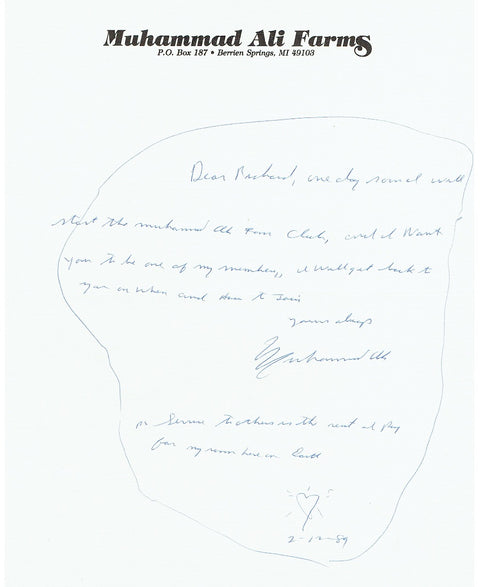 Muhammad Ali Farms
P.O. Box 187 • Berrien Springs, MI 49103
Dear Richard, one day soon I will
start the muhammad Ali Fan Club, and I Want
you to be one of my members, I will get back to
you on when and how to Join
yours always
Muhammad Ali
ps Service to others is the rent I Pay
for my room here on Earth
2-12-89